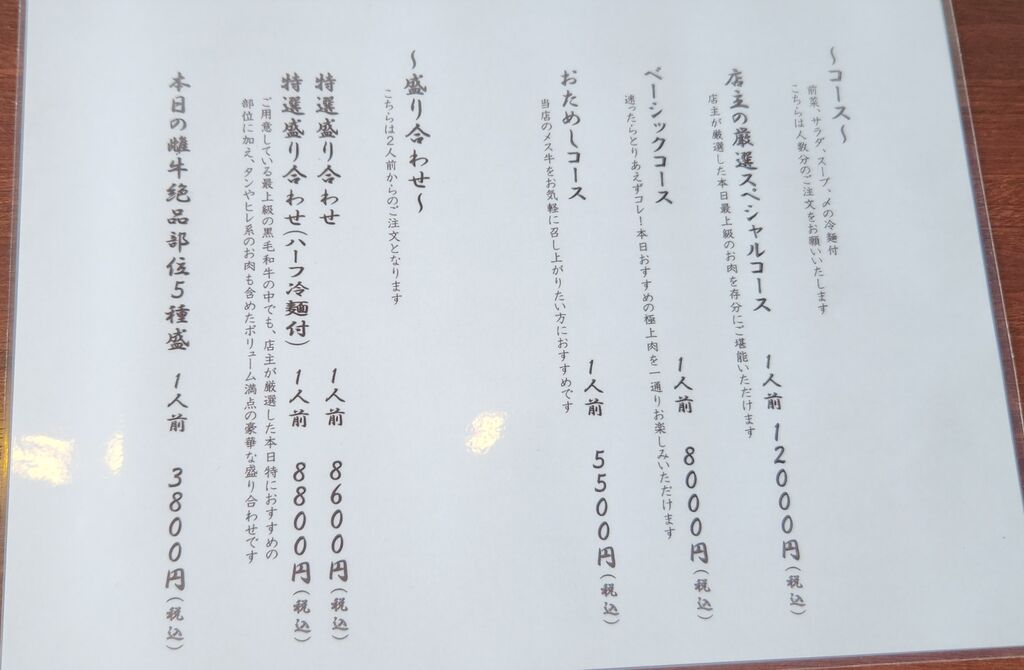 ～コース～
前菜、サラダ、スープ、〆の冷麺付
こちらは人数分のご注文をお願いいたします
店主の厳選スペシャルコース 1人前 12000円(税込)
店主が厳選した本日最上級のお肉を存分にご堪能いただけます
ベーシックコース 1人前 8000円(税込)
迷ったらとりあえずコレ！本日おすすめの極上肉を一通りお楽しみいただけます
おためしコース 1人前 5500円(税込)
当店のメス牛をお気軽に召し上がりたい方におすすめです
～盛り合わせ～
こちらは2人前からのご注文となります
特選盛り合わせ 1人前 8600円(税込)
特選盛り合わせ(ハーフ冷麺付) 1人前 8800円(税込)
ご用意している最上級の黒毛和牛の中でも、店主が厳選した本日特におすすめの
部位に加え、タンやヒレ系のお肉も含めたボリューム満点の豪華な盛り合わせです
本日の雌牛絶品部位5種盛 1人前 3800円(税込)